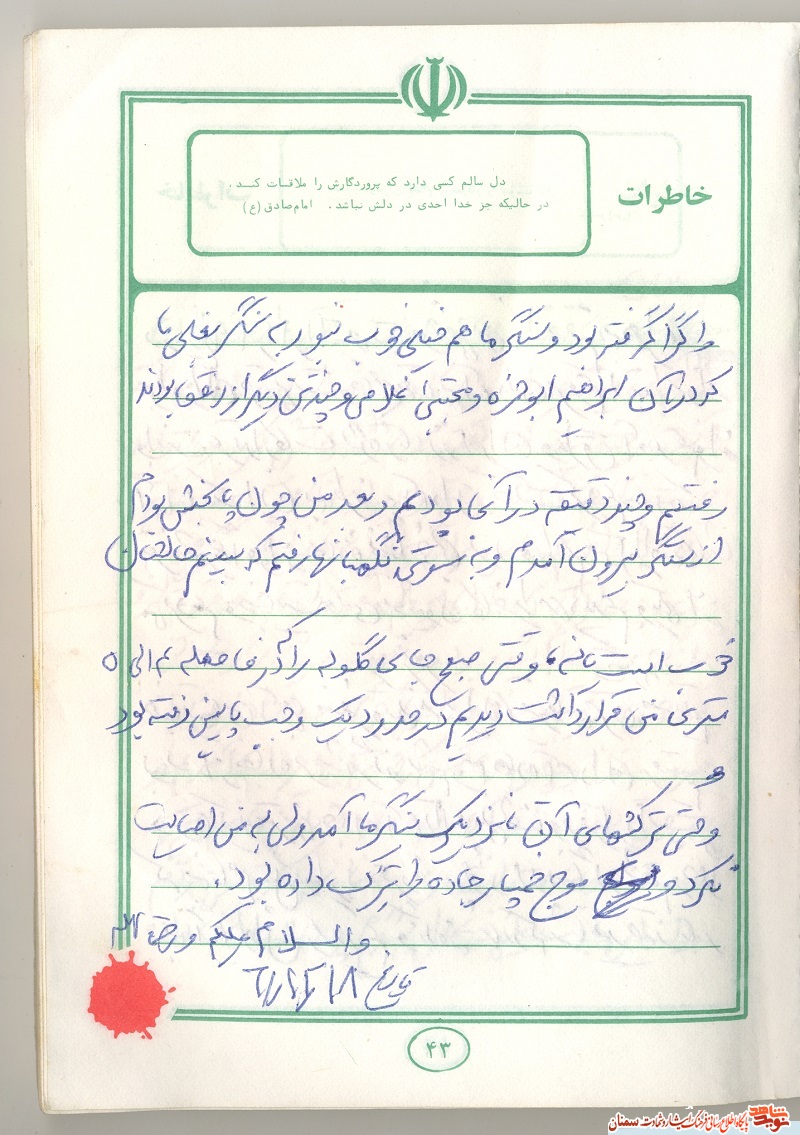 خاطرات
دل سالم کسی دارد که پروردگارش را ملاقات کند.
در حالیکه جز خدا احدی در دلش نباشد. امام صادق (ع)
گرفته بود و سنگر ما هم خیلی خوب نبود به سنگر بغلی ما
که در آن ابراهیم ابوحمزه و مجتبی غلامی و چند تن دیگر از رفقا بودند
رفتیم و چند دقیقه در آنجا بودیم و بعد من چون پاسبخش بودم
از سنگر بیرون آمدم و به سوی نگهبانها رفتم که ببینم حالشان
خوب است یا نه، وقتی صبح جای گلوله را که در فاصله ۴ الی ۵
متری من قرار داشت دیدیم که در حدود یک وجب پایین رفته بود
و
وقتی ترکشهای آن تا نزدیک سنگر ما آمد ولی به من اصابت
نکرد و موج خمپاره جاده را ترک داده بود.
والسلام علیکم و رحمة الله
تاریخ
۴۳
نوید شاهد
پایگاه اطلاع رسانی فرهنگ ایثار و شهادت سمنان